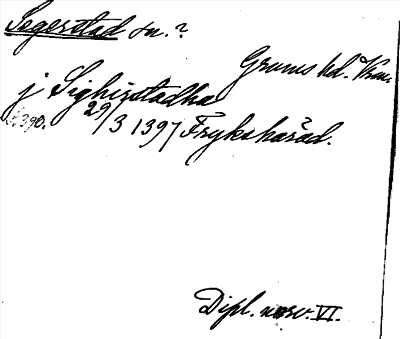 Segerstad sn.?
Grums hd. Vrm.
j Sighirstadha
29/3 1397 Frykshäräd.
s. 390.
Dipl. norv. VI.